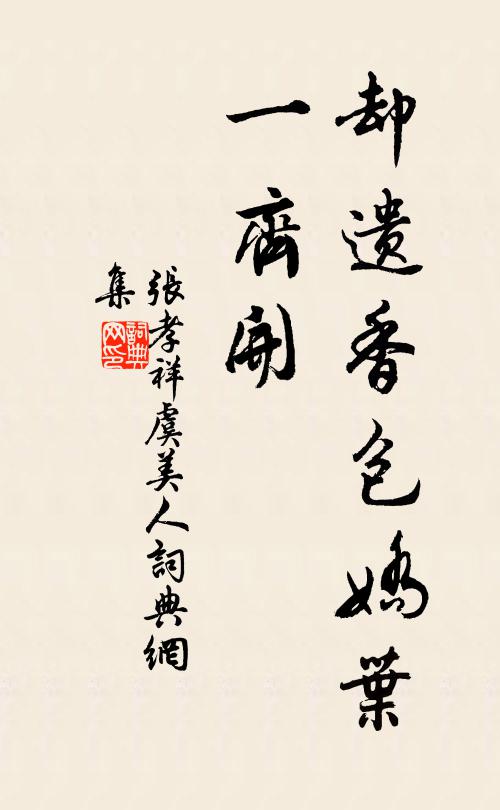 却遺香色嬌葉
一齊開
張孝祥虞美人詞典網
集
詞典網印